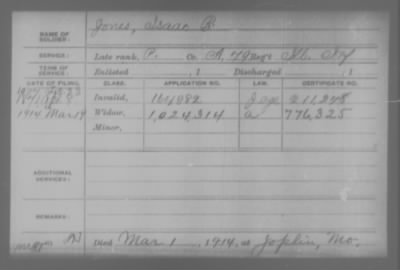 NAME OF SOLDIER: Jones, Isaac B
SERVICE: Late rank, P. Co. A, 79 Reg't Ill. Inf
TERM OF SERVICE: Enlisted , 1 Discharged , 1
DATE OF FILING. CLASS. APPLICATION NO. LAW. CERTIFICATE NO.
Invalid, 164082 211,248
1914 Mar 19 Widow, 1,024,314 a 776,325
Minor,
ADDITIONAL SERVICES:
REMARKS:
Died Mar 1, 1914, at Joplin, Mo.